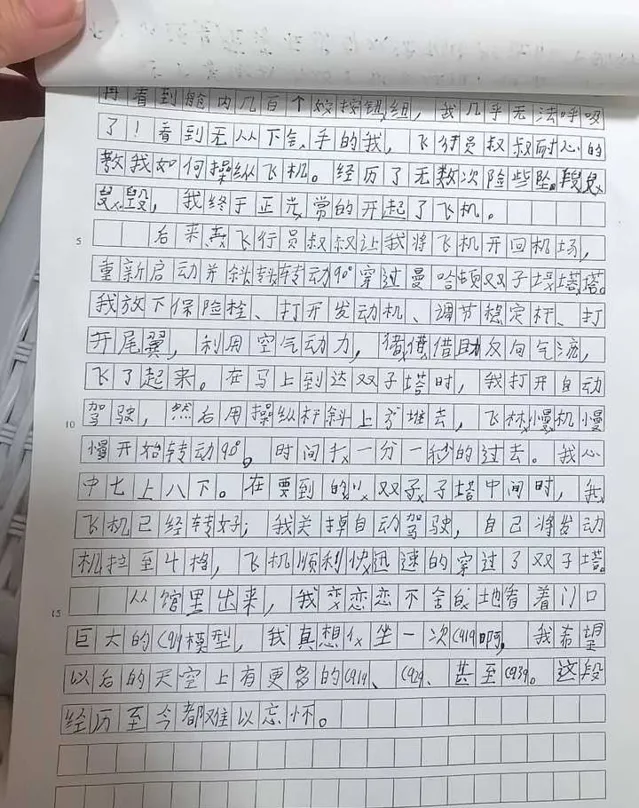 再看到舱内几百个按钮组，我几乎无法呼吸
了！看到无从下手的我，飞行员叔叔耐心的
教我如何操纵飞机。经历了无数次险些坠
毁，我终于正常的开起了飞机。
后来飞行员叔叔让我将飞机开回机场，
重新启动并斜转动90°穿过曼哈顿双子塔。
我放下保险栓、打开发动机、调节稳定杆、打
开尾翼，利用空气动力，借助反向气流，
飞了起来。在马上到达双子塔时，我打开自动
驾驶，然后用操纵杆斜上推去，飞机慢
慢开始转动90°。时间一分一秒的过去。我心
中七上八下。在要到的双子塔中间时，我
飞机已经转好；我关掉自动驾驶，自己将发动
机拉至4格，飞机顺利快迅速的穿过了双子塔。
从馆里出来，我恋恋不舍地看着门口
巨大的C919模型，我真想坐一次C919啊，我希望
以后的天空上有更多的C919、C929、甚至C939。这段
经历至今都难以忘怀。
5
10
15